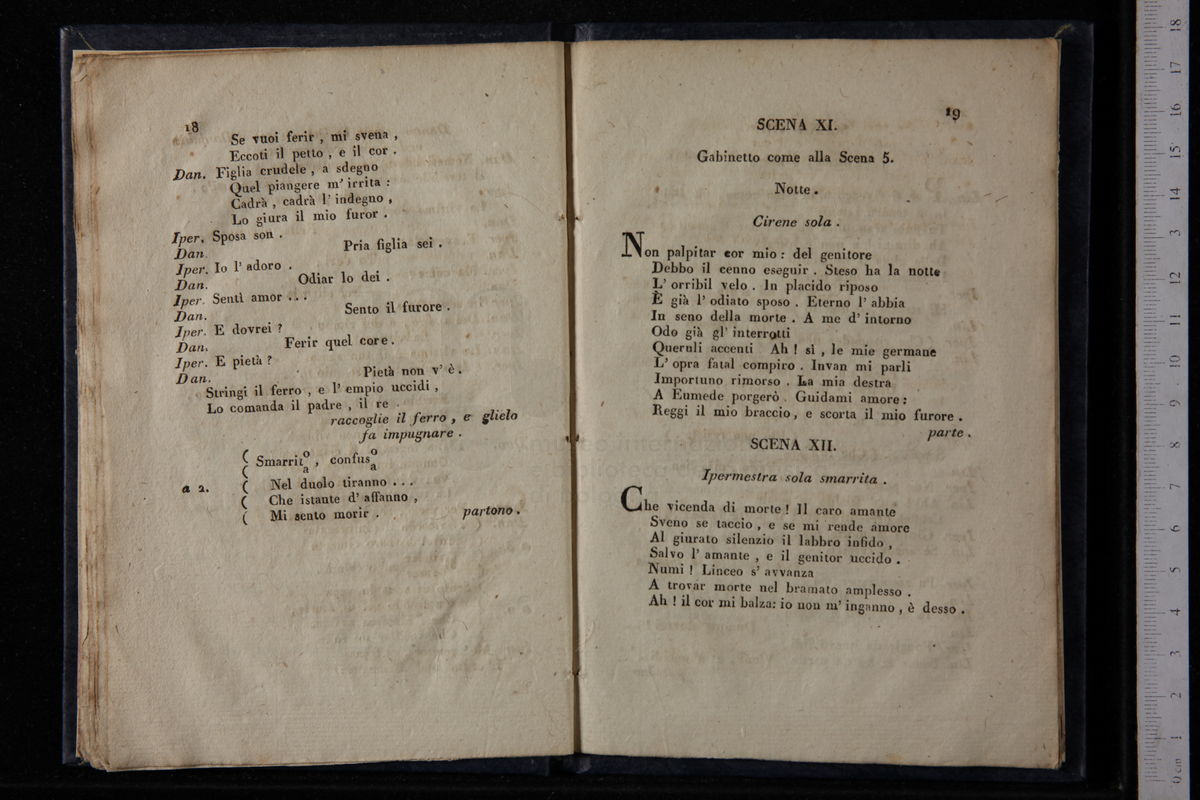 18
Se vuoi ferir , mi svena ,
Eccoti il petto , e il cor .
Dan. Figlia crudele , a sdegno
Quel piangere m' irrita :
Cadrà , cadrà l' indegno ,
Lo giura il mio furor .
Iper. Sposa son .
Dan. Pria figlia sei .
Iper. Io l' adoro .
Dan. Odiar lo dei .
Iper. Sentì amor ...
Dan. Sento il furore .
Iper. E dovrei ?
Dan. Ferir quel core .
Iper. E pietà ?
Dan. Pietà non v' è .
Stringi il ferro , e l' empio uccidi ,
Lo comanda il padre , il re .
raccoglie il ferro , e glielo
fa impugnare .
a 2.
( Smarrit o/a , confus o/a
( Nel duolo tiranno ...
( Che istante d' affanno ,
( Mi sento morir . partono .
19
SCENA XI.
Gabinetto come alla Scena 5.
Notte .
Cirene sola .
Non palpitar cor mio : del genitore
Debbo il cenno eseguir . Steso ha la notte
L' orribil velo . In placido riposo
È già l' odiato sposo . Eterno l' abbia
In seno della morte . A me d' intorno
Odo già gl' interrotti
Queruli accenti Ah ! sì , le mie germane
L' opra fatal compiro . Invan mi parli
Importuno rimorso . La mia destra
A Eumede porgerò . Guidami amore :
Reggi il mio braccio , e scorta il mio furore .
parte .
SCENA XII.
Ipermestra sola smarrita .
Che vicenda di morte ! Il caro amante
Sveno se taccio , e se mi rende amore
Al giurato silenzio il labbro infido ,
Salvo l' amante , e il genitor uccido .
Numi ! Linceo s' avvanza
A trovar morte nel bramato amplesso .
Ah ! il cor mi balza: io non m' inganno , è desso .
0 cm 1 2 3 4 5 6 7 8 9 10 11 12 13 14 15 16 17 18